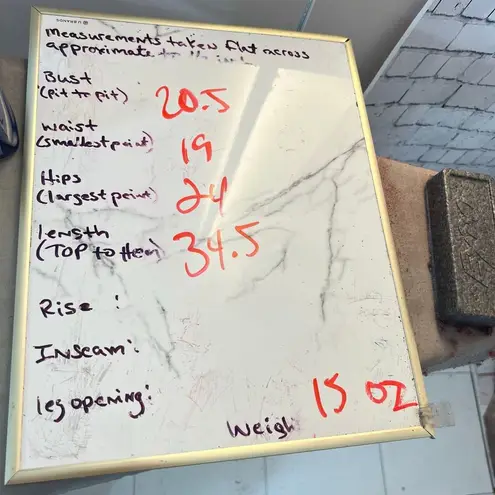 measurements taken flat across
approximate to
Bust
(pit to pit) 20.5
waist
(smallest point) 19
Hips
(largest point) 24
length
(TOP to Hem) 34.5
Rise :
Inseam:
leg opening:
15 oz
Weigh